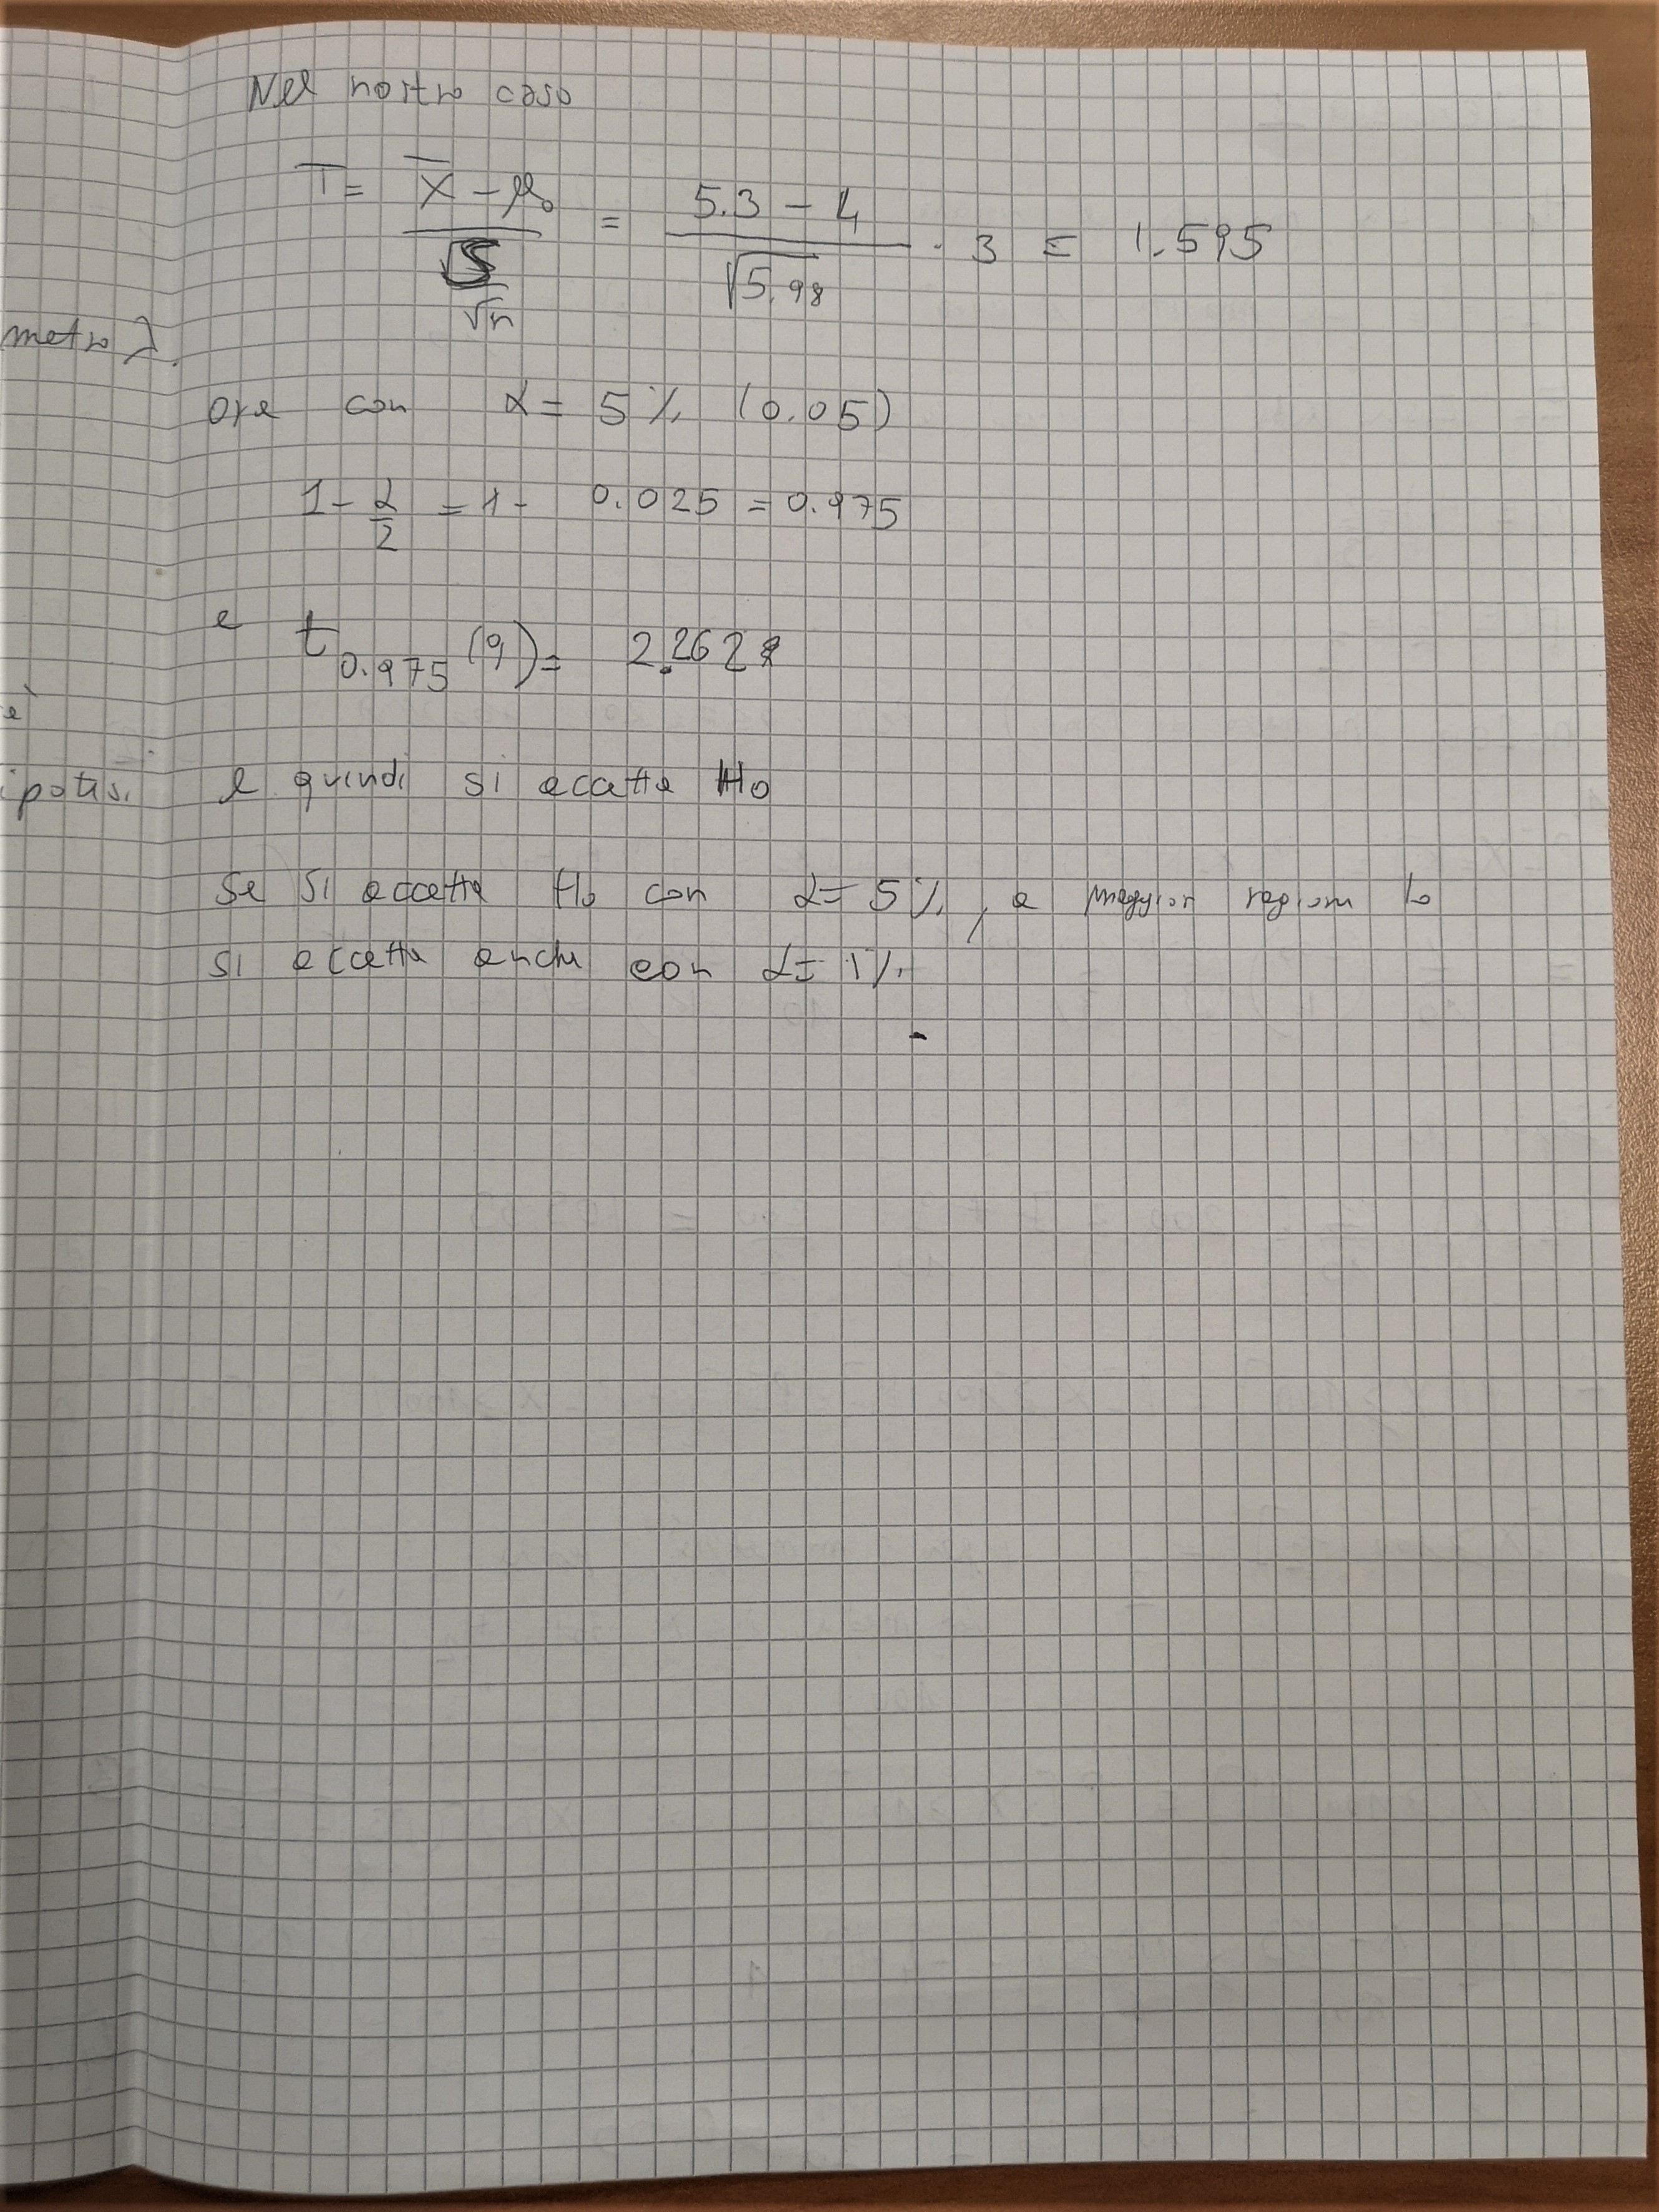 Nel nostro caso
T = (X̄ - μ₀) / (S / √n) = (5.3 - 4) / √5.98 · 3 = 1.595
metro λ.
ora con α = 5% (0.05)
1 - α/2 = 1 - 0.025 = 0.975
e t₀.₉₇₅ (9) = 2.262
è
ipotesi. e quindi si accetta H₀
Se si accetta H₀ con α = 5%, a maggior ragione lo
si accetta anche con α = 1%.